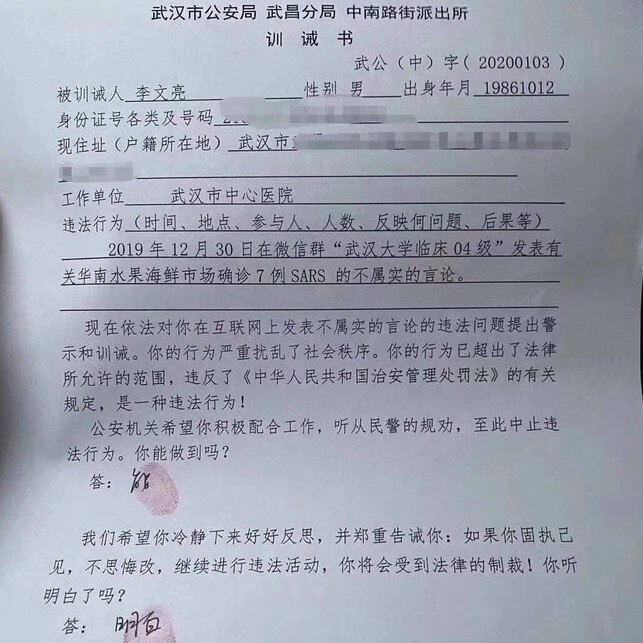 武汉市公安局 武昌分局 中南路街派出所
训 诫 书
武公（中）字（20200103）
被训诫人 李文亮 性别 男 出身年月 19861012
身份证号各类及号码
现住址（户籍所在地） 武汉市
工作单位 武汉市中心医院
违法行为（时间、地点、参与人、人数、反映何问题、后果等）
2019 年 12 月 30 日在微信群“武汉大学临床 04 级”发表有
关华南水果海鲜市场确诊 7 例 SARS 的不属实的言论。
现在依法对你在互联网上发表不属实的言论的违法问题提出警
示和训诫。你的行为严重扰乱了社会秩序。你的行为已超出了法律
所允许的范围，违反了《中华人民共和国治安管理处罚法》的有关
规定，是一种违法行为！
公安机关希望你积极配合工作，听从民警的规劝，至此中止违
法行为。你能做到吗？
答：能
我们希望你冷静下来好好反思，并郑重告诫你：如果你固执己
见，不思悔改，继续进行违法活动，你将会受到法律的制裁！你听
明白了吗？
答：明白